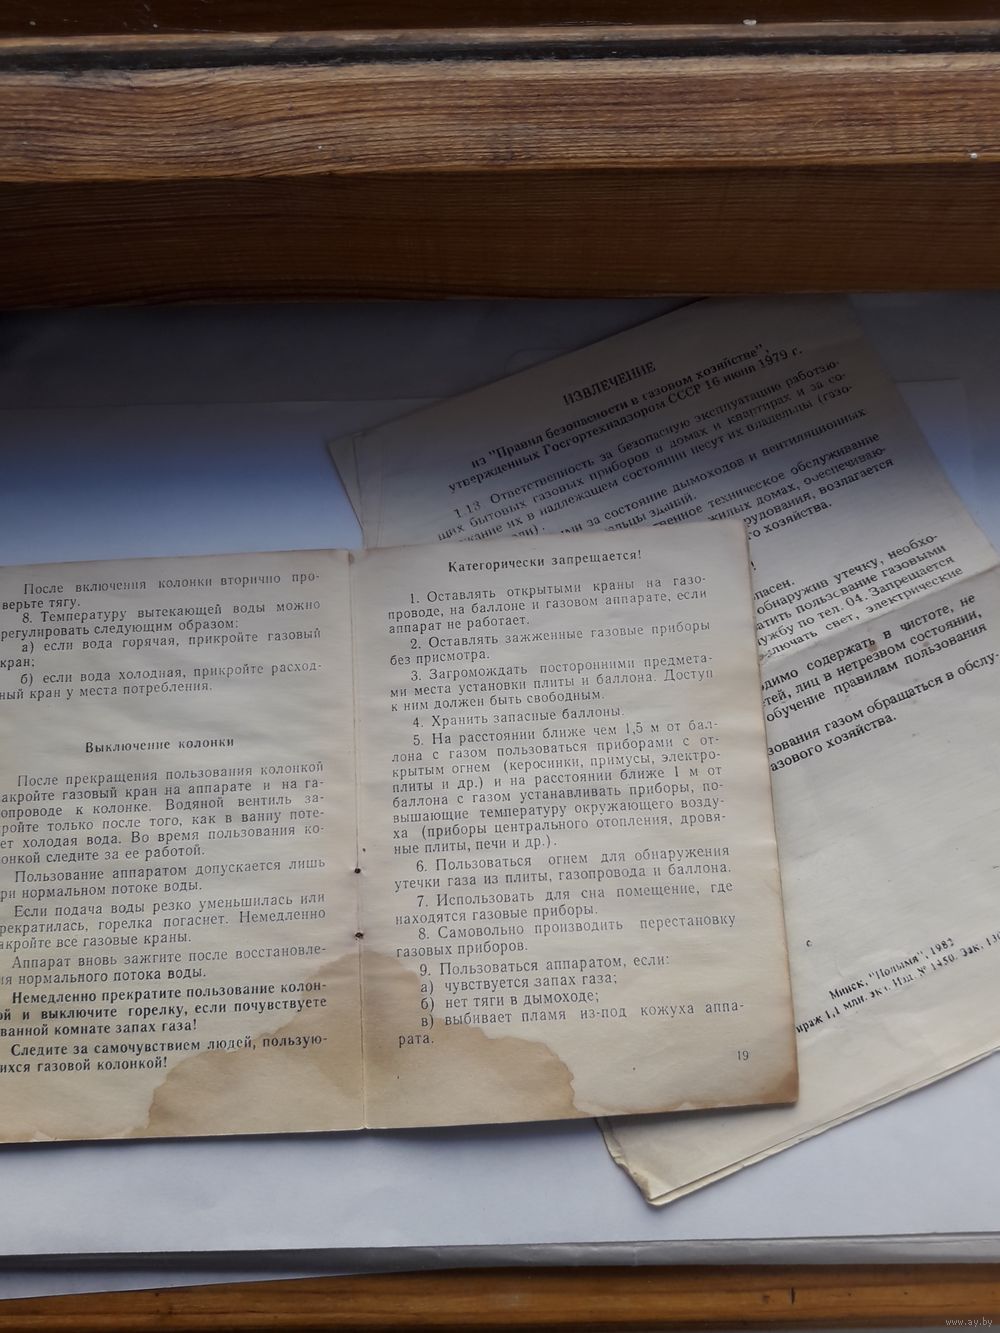 После включения колонки вторично про-
верьте тягу.
8. Температуру вытекающей воды можно
регулировать следующим образом:
а) если вода горячая, прикройте газовый
кран;
б) если вода холодная, прикройте расход-
ный кран у места потребления.
Выключение колонки
После прекращения пользования колонкой
акройте газовый кран на аппарате и на га-
опроводе к колонке. Водяной вентиль за-
ройте только после того, как в ванну поте-
ет холодая вода. Во время пользования ко-
онкой следите за ее работой.
Пользование аппаратом допускается лишь
ри нормальном потоке воды.
Если подача воды резко уменьшилась или
рекратилась, горелка погаснет. Немедленно
акройте все газовые краны.
Аппарат вновь зажгите после восстановле-
ия нормального потока воды.
Немедленно прекратите пользование колон-
ой и выключите горелку, если почувствуете
ванной комнате запах газа!
Следите за самочувствием людей, пользую-
ихся газовой колонкой!
Категорически запрещается!
1. Оставлять открытыми краны на газо-
проводе, на баллоне и газовом аппарате, если
аппарат не работает.
2. Оставлять зажженные газовые приборы
без присмотра.
3. Загромождать посторонними предмета-
ми места установки плиты и баллона. Доступ
к ним должен быть свободным.
4. Хранить запасные баллоны.
5. На расстоянии ближе чем 1,5 м от бал-
лона с газом пользоваться приборами с от-
крытым огнем (керосинки, примусы, электро-
плиты и др.) и на расстоянии ближе 1 м от
баллона с газом устанавливать приборы, по-
вышающие температуру окружающего возду-
ха (приборы центрального отопления, дровя-
ные плиты, печи и др.).
6. Пользоваться огнем для обнаружения
утечки газа из плиты, газопровода и баллона.
7. Использовать для сна помещение, где
находятся газовые приборы.
8. Самовольно производить перестановку
газовых приборов.
9. Пользоваться аппаратом, если:
а) чувствуется запах газа;
б) нет тяги в дымоходе;
в) выбивает пламя из-под кожуха аппа-
рата.
19
ИЗВЛЕЧЕНИЕ
из "Правил безопасности в газовом хозяйстве",
утвержденных Госгортехнадзором СССР 16 июня 1979 г.
1.13 Ответственность за безопасную эксплуатацию работаю-
щих бытовых газовых приборов в домах и квартирах и за со-
жание их в надлежащем состоянии несут их владельцы (газо-
ели).
ми за состояние дымоходов и вентиляционных
льцы зданий.
твенное техническое обслуживание
жилых домах, обеспечиваю-
рудования, возлагается
го хозяйства.
!
пасен.
обнаружив утечку, необхо-
атить пользование газовыми
ужбу по тел. 04. Запрещается
ключать свет, электрические
димо содержать в чистоте, не
тей, лиц в нетрезвом состоянии,
обучение правилам пользования
зования газом обращаться в обслу-
азового хозяйства.
с.
Минск, "Полымя", 1982
ираж 1,1 млн. экз. Изд. № 1450. Зак. 130
www.ay.by